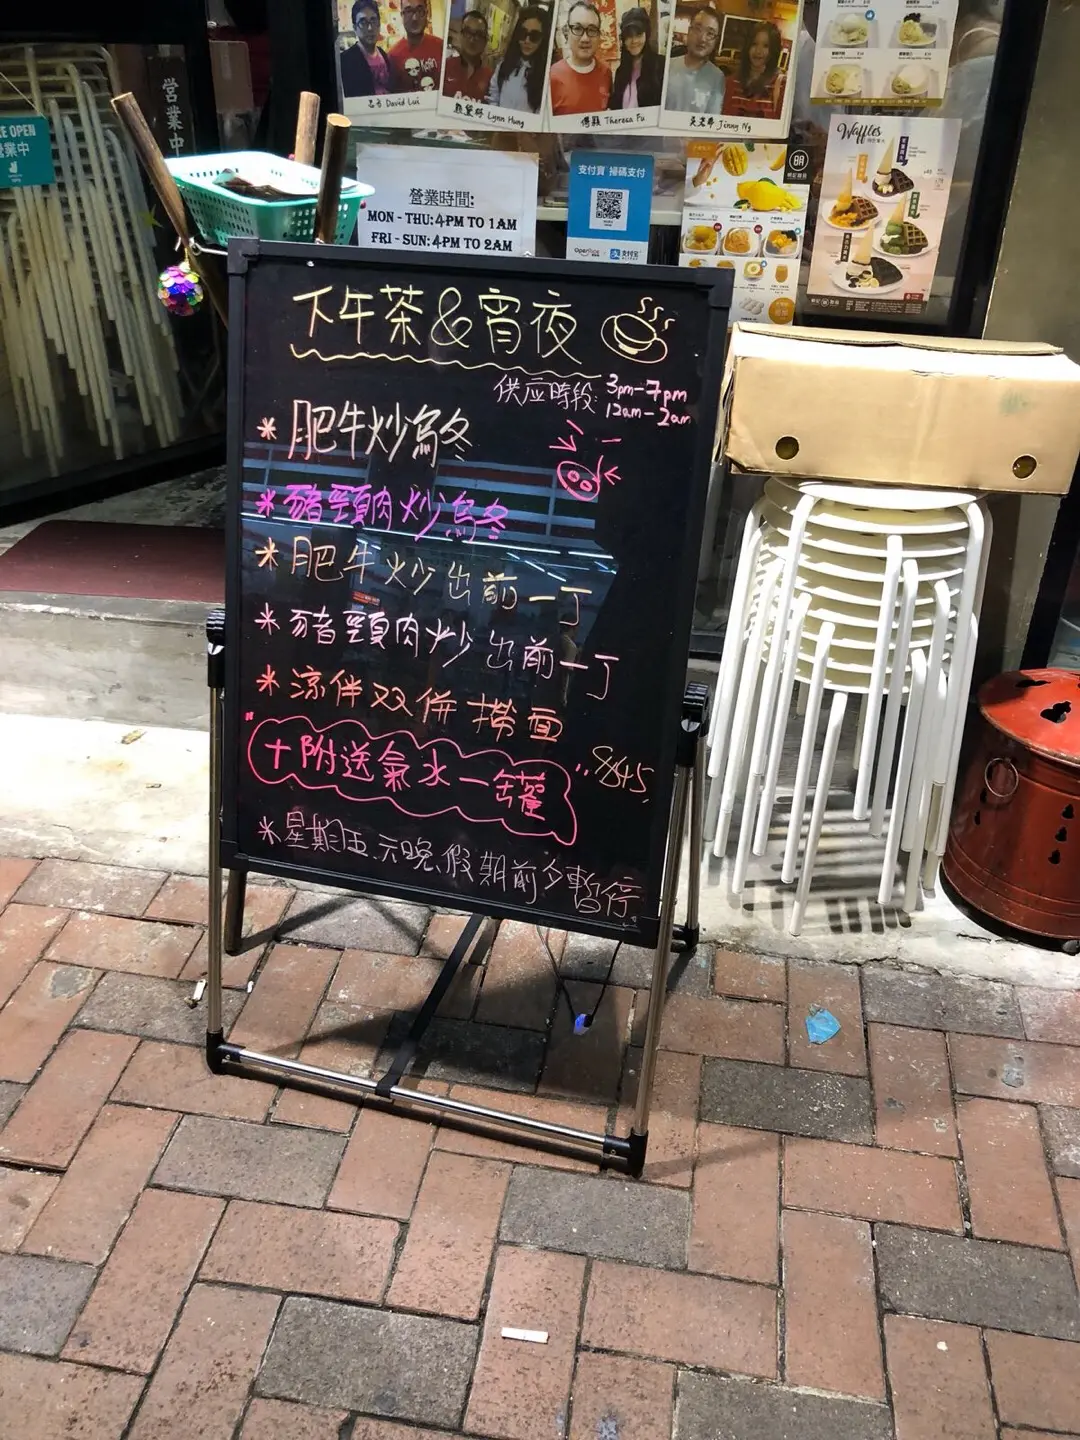 営業中
EE OPEN
營業中
呂方 David Lui
熊黛林 Lynn Hung
傅穎 Theresa Fu
吳若希 Jinny Ng
營業時間:
MON - THU: 4PM TO 1AM
FRI - SUN: 4PM TO 2AM
支付寶 掃碼支付
OpenRice
支付宝
明
Waffles
下午茶&宵夜
供应時段: 3pm-7pm
12am-2am
* 肥牛炒烏冬
* 豬頸肉炒烏冬
* 肥牛炒出前一丁
* 豬頸肉炒出前一丁
* 涼伴双併撈面
"十附送氣水一罐" $45